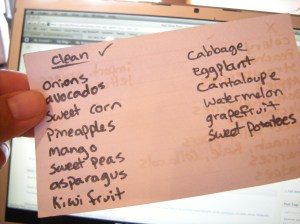 Clean ✓
Onions
avocados
Sweet corn
pineapples
mango
Sweet peas
asparagus
Kiwi fruit
Cabbage
Eggplant
Cantaloupe
watermelon
grapefruit
sweet potatoes